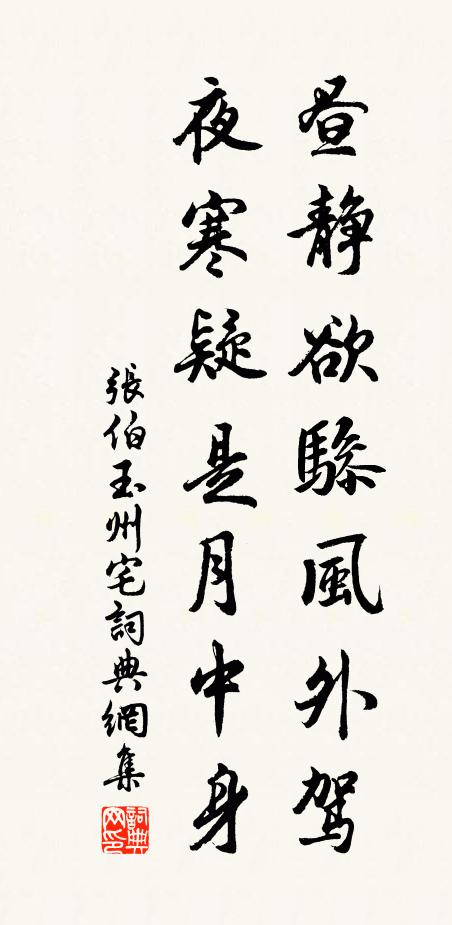 昼静欲驂風外駕
夜寒疑是月中身
張伯玉州宅詞典網集
詞典网印